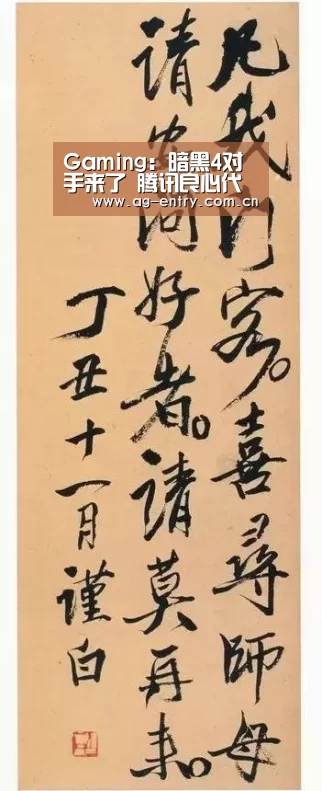 凡我門客。喜尋師母
請安問好者。請莫再來。
丁丑十一月謹白
Gaming：暗黑4对
手来了 腾讯良心代
www.ag-entry.com.cn